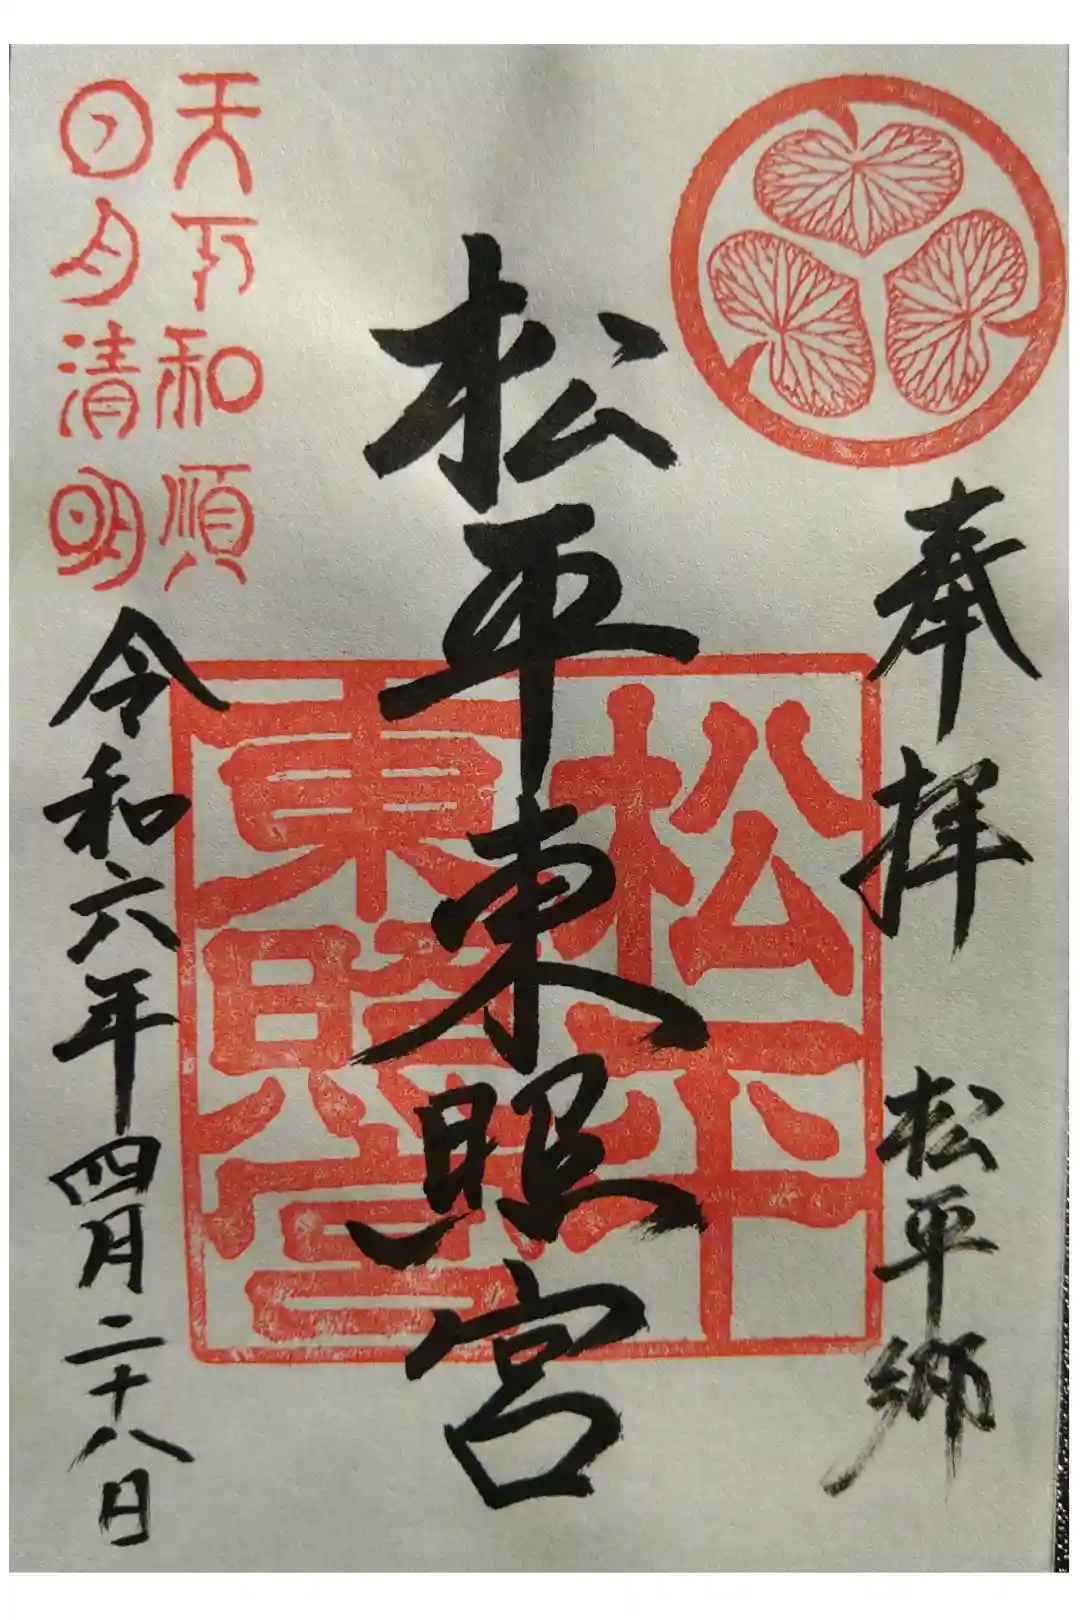 奉拝 松平郷
松平東照宮
松平
東照宮
天下和順
日月清明
令和六年四月二十八日